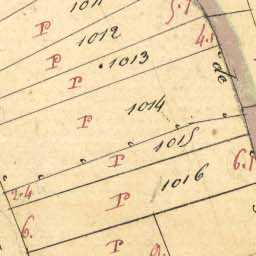 1011
5.1
P
1012
4.
P
1013
de
P
1014
P
1015
P
1016
6.1
2.4
6.
P